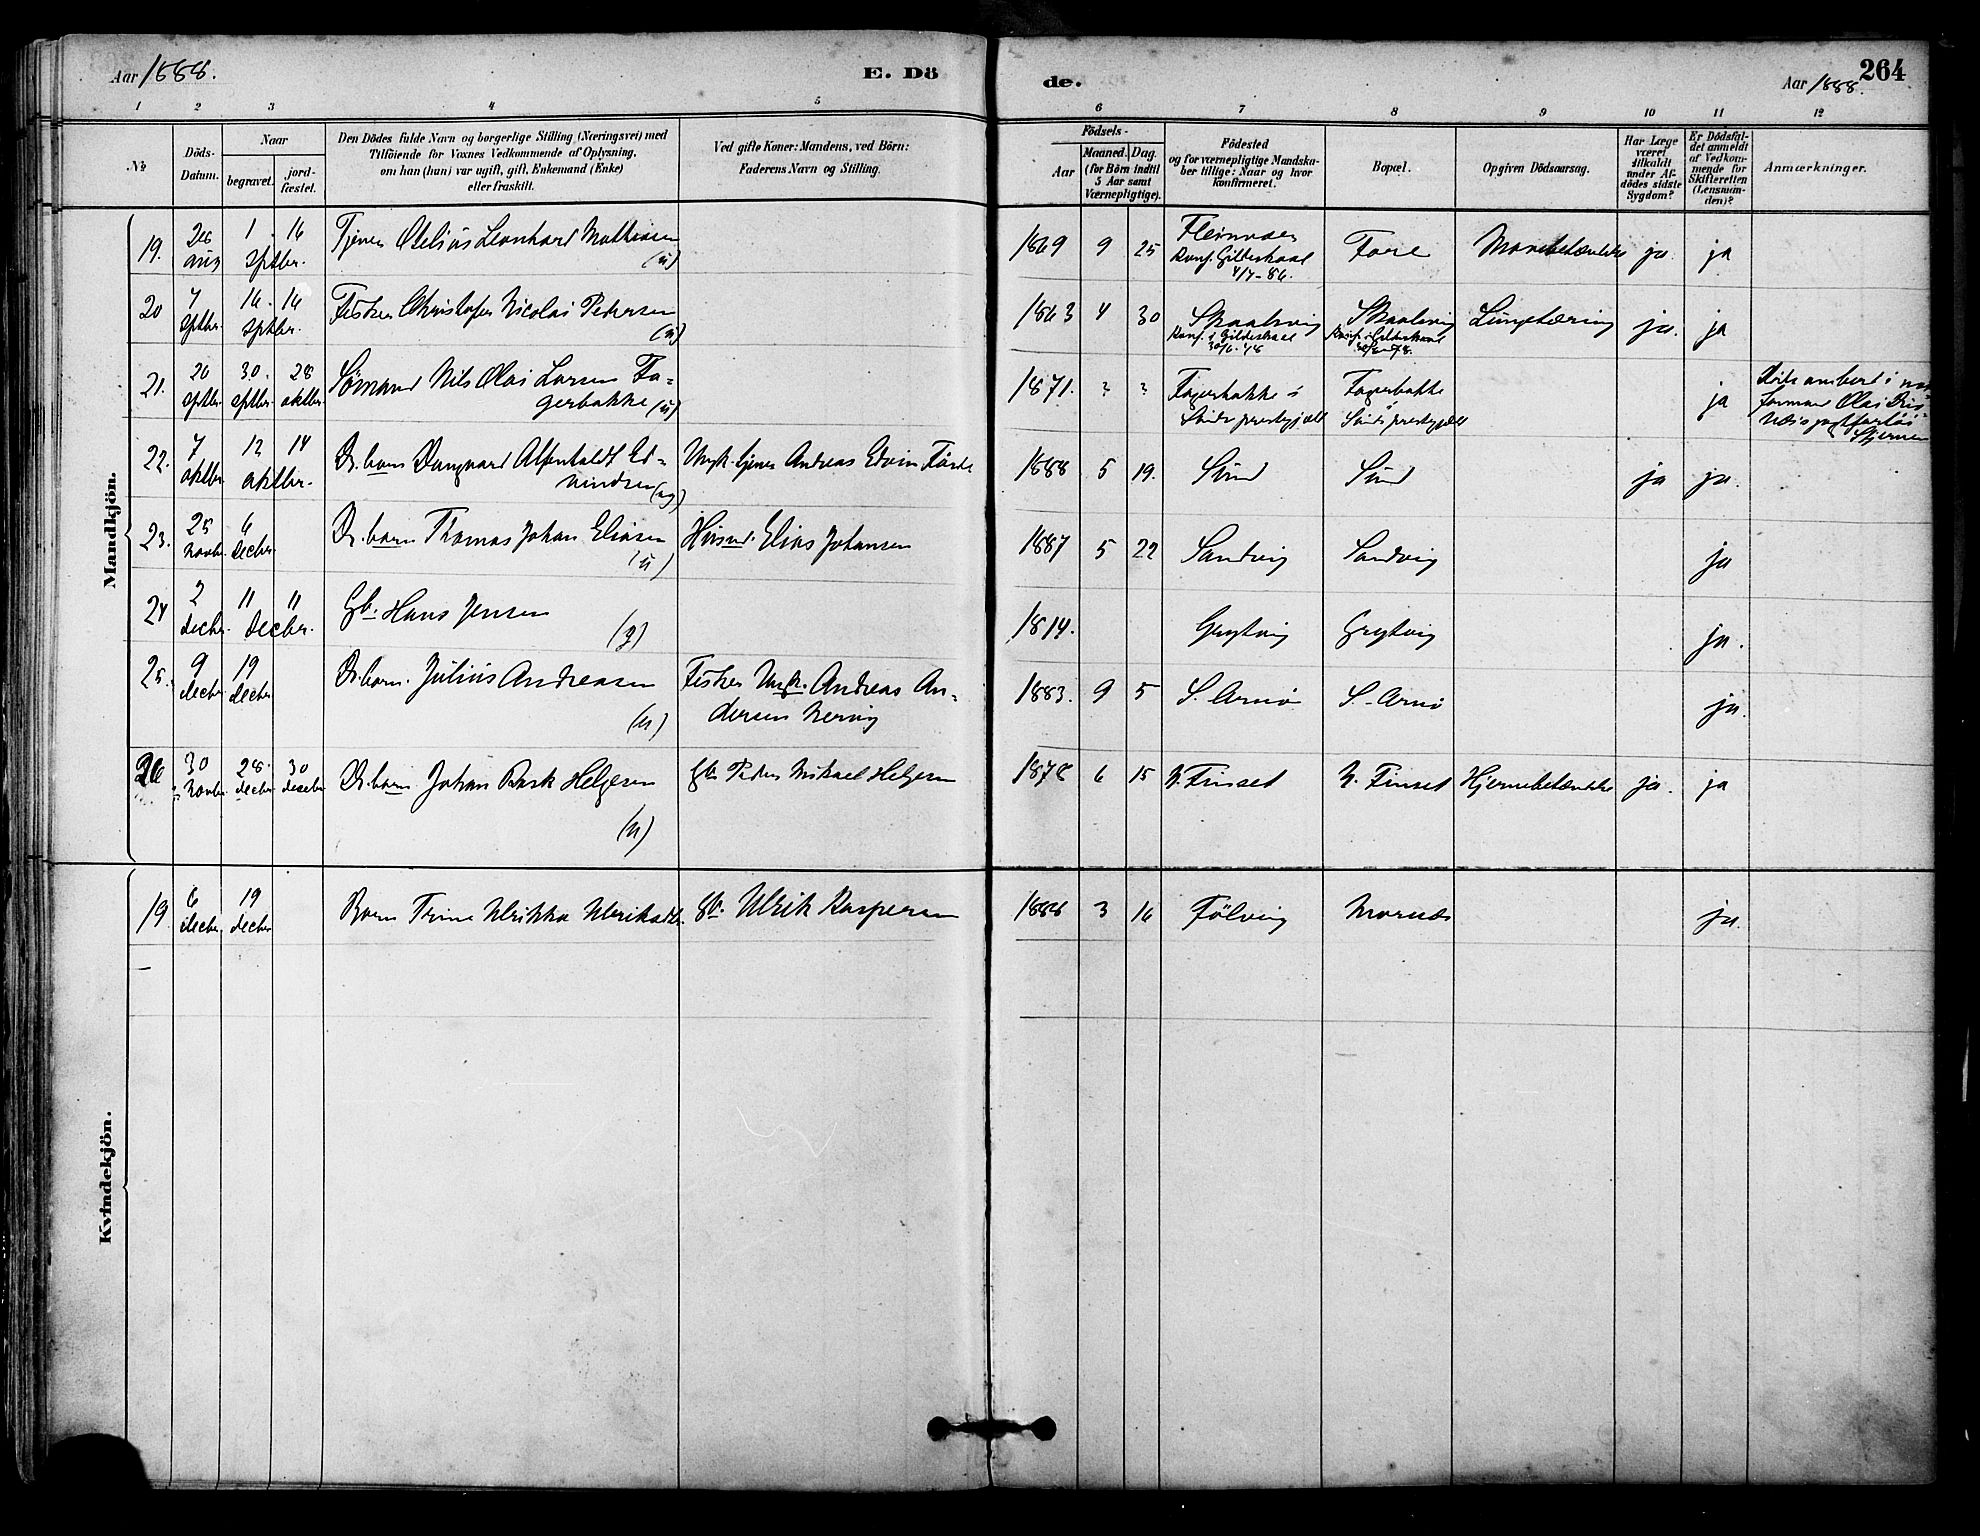 Aar 1888.
E. Dö
de.
Aar 1888.
264
1 2 3 4 5 6 7 8 9 10 11 12
No
Döds-
Datum.
Naar
begravet.
jord-
fæstet.
Den Dödes fulde Navn og borgerlige Stilling (Næringsvei) med
Tilföiende for Voxnes Vedkommende af Oplysning,
om han (hun) var ugift, gift, Enkemand (Enke)
eller fraskilt.
Ved gifte Koner: Mandens, ved Börn:
Faderens Navn og Stilling.
Födsels-
Aar
Maaned. Dag.
(for Börn indtil
5 Aar samt
Værnepligtige).
Födested
og for værnepligtige Mandska-
ber tillige: Naar og hvor
konfirmeret.
Bopæl.
Opgiven Dödsaarsag.
Har Læge
været
tilkaldt
under Af-
dödes sidste
Sygdom?
Er Dödsfal-
det anmeldt
af Vedkom-
mende for
Skifteretten
(Lensman-
den)?
Anmærkninger.
Mandkjön.
19. 26 aug 1 16 sptbr. Tjener Otelius Leonhard Mathisen (u) 1869 9 25 Fleinvær Konf. Gildeskaal 4/7-86. Fore Mavebetændelse ja. ja
20 7 sptbr. 16. 16 sptbr. Fisker Christofer Nicolai Pedersen (u) 1863 4 30 Skaalsvig Konf. i Gildeskaal 30/6-78 Skaalsvig Konf. i Gildeskaal 30/6-78. Lungetæring ja. ja
21. 20 sptbr. 30. sptbr. 28 oktbr. Sömand Nils Olai Larsen Fa-
gerbakke (u) 1871. ? ? Fagerbakke i Sunds prestegjæld Fagerbakke Sunds prestegjæld ja
22. 7 oktbr. 12 14 oktbr. Dr. barn Dangvard Alfentaldt Ed-
vindsen (ug) Ungk. tjener Andreas Edvin 1888 5 19. Sund Sund ja ja.
23. 25 novbr. 6 decbr. Dr. barn Thomas Johan Eliasen (u) Husmd. Elias Johansen 1887 5 22 Sandvig Sandvig ja
24 2 decbr. 11 11 decbr. Gb. Hans Jensen (g) 1814. Grytvig Grytvig ja.
25. 9 decbr. 19 decbr. Dr. barn. Julius Andreasen (u) Fisker Ungk. Andreas An-
dersen Nervig 1883. 9 5 S. Arnö S. Arnö ja.
26 30 novbr. 28. decbr. 30 decbr. Dr. barn Johan Helgesen (u) Gb. Peder Mikael Helgesen 1878 6 15 N. Finset N. Finset Hjernebetændelse ja. ja
Kvindekjön.
19. 6 decbr. 19 decbr. Barn Trine Ulrikka Ulriksdtr. Gb. Ulrik Kaspersen 1888 3 16 Fölvig Mornes ja.